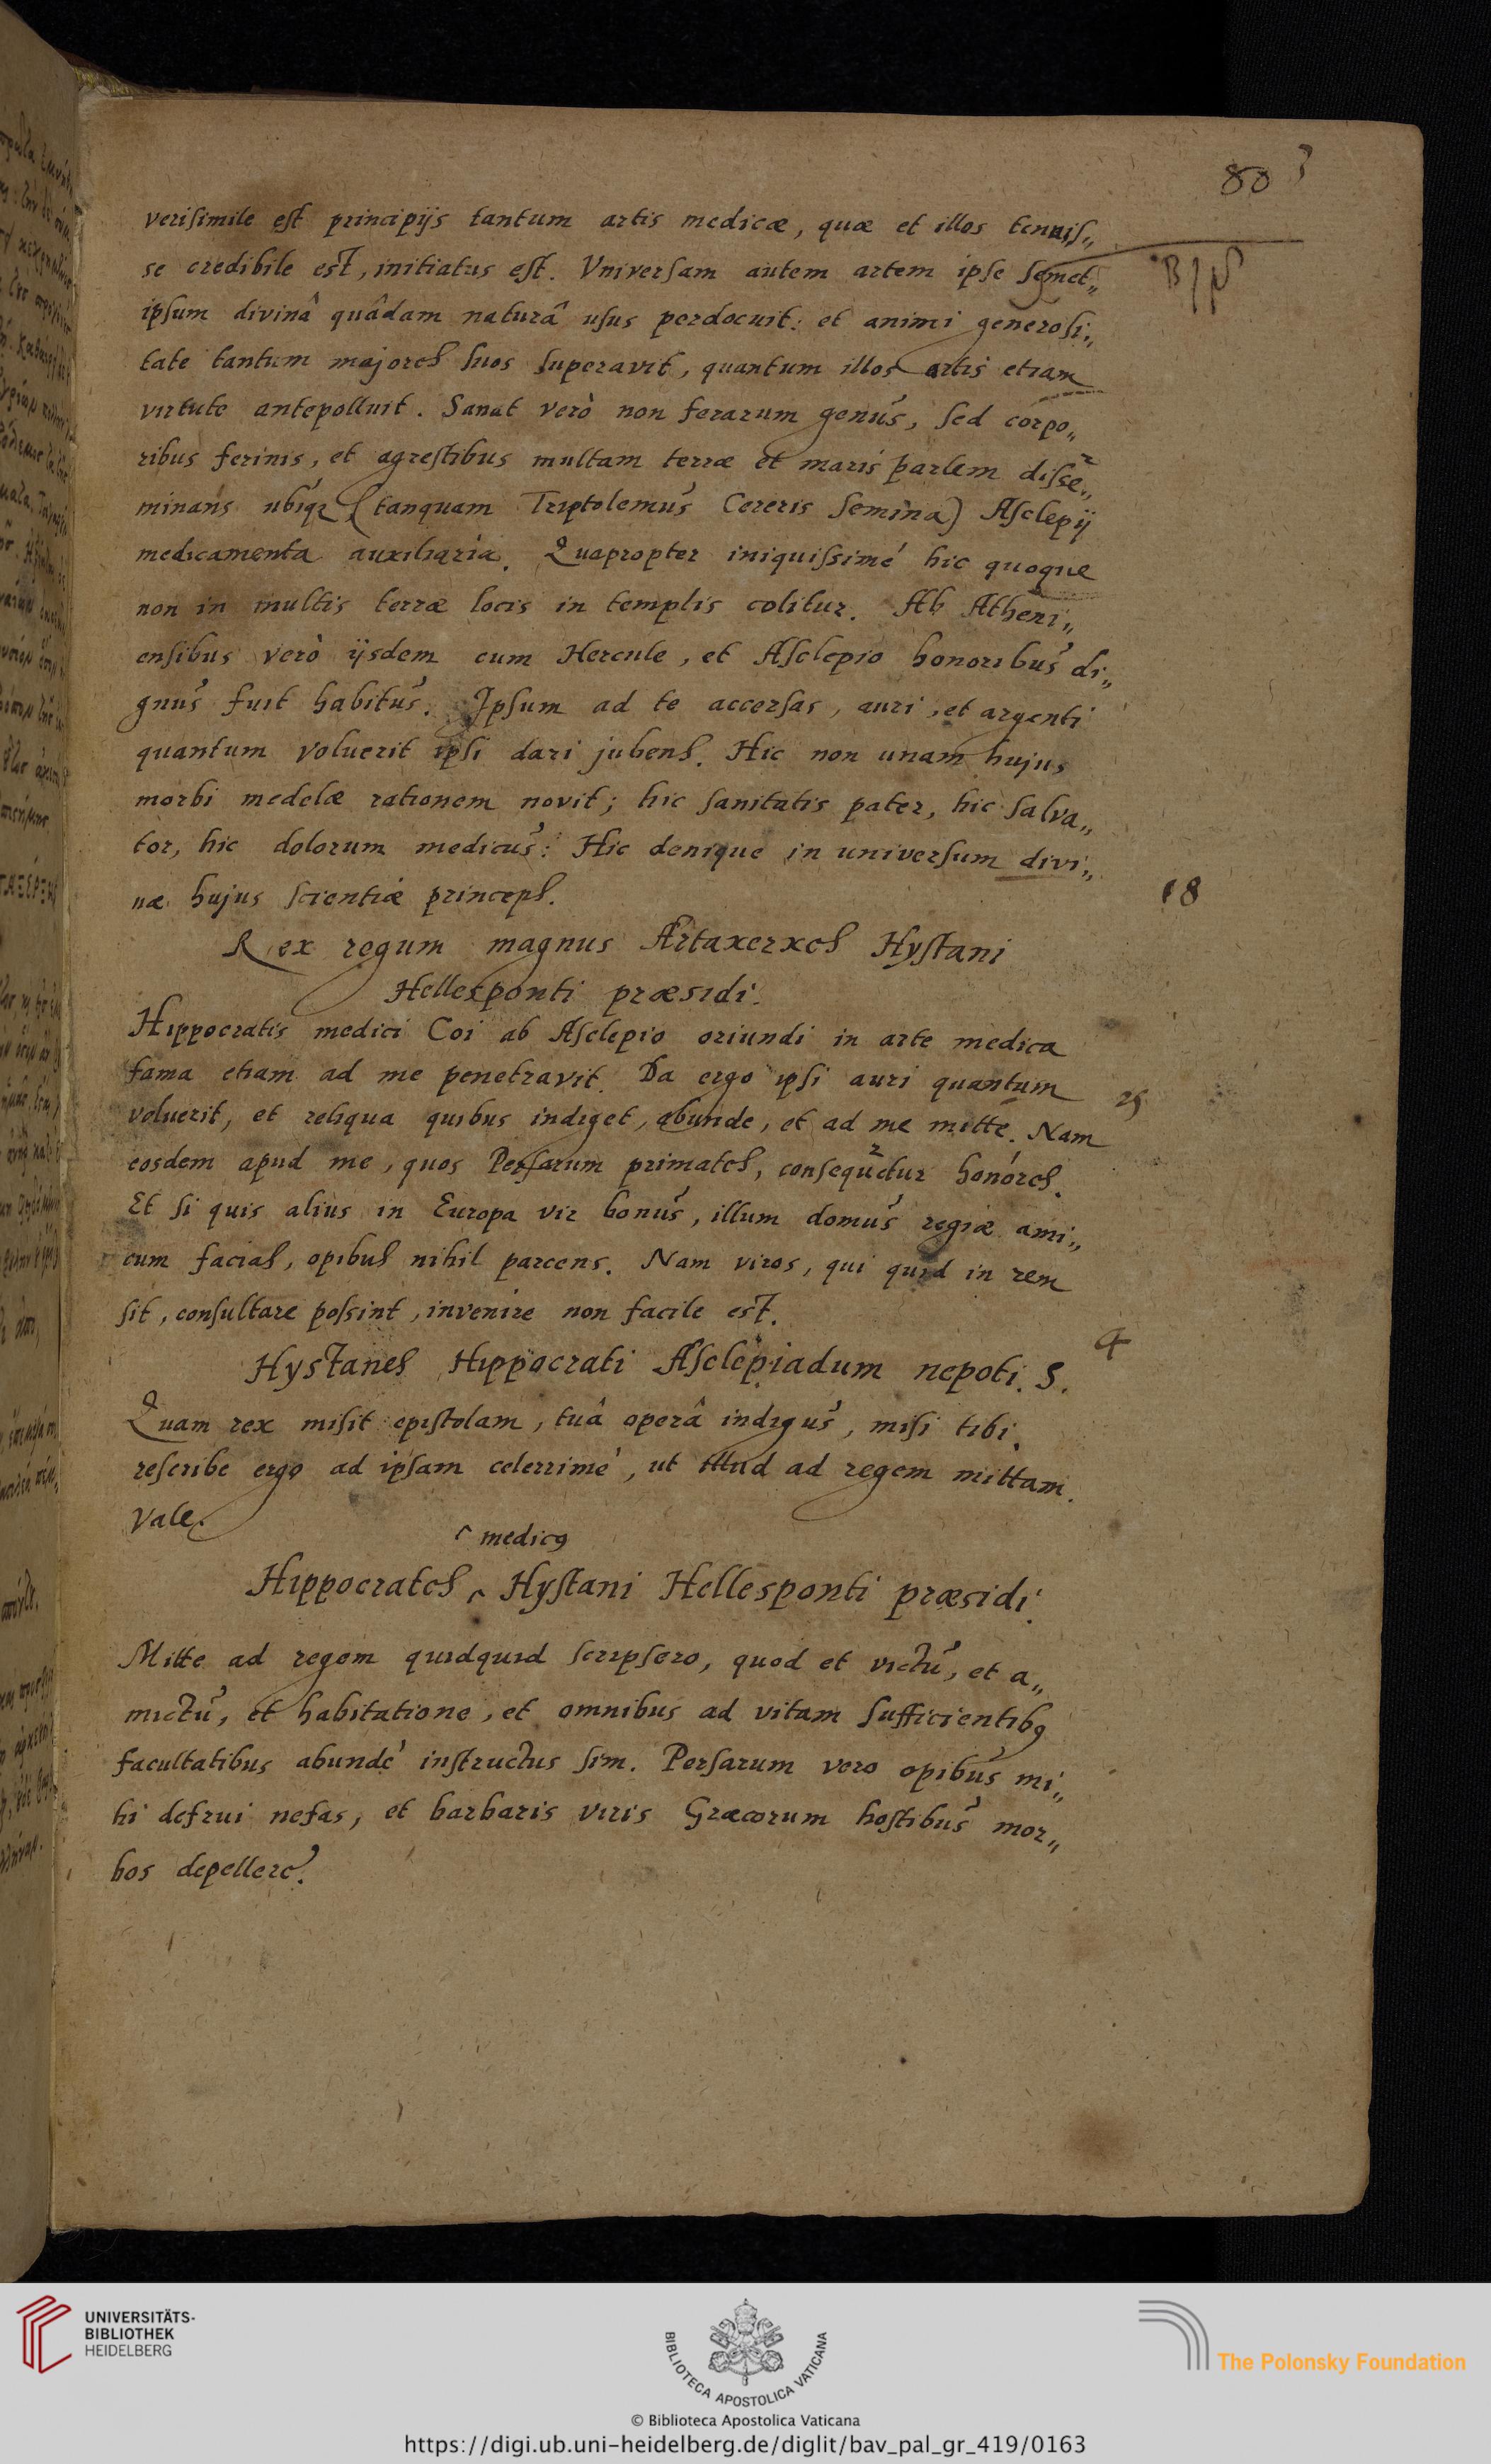 80
verisimile est principijs tantum artis medicæ, quæ et illos tenuis„
se credibile est, initiatus est. Vniversam autem artem ipse semet„
ipsum divinâ quâdam naturâ usus perdocuit: et animi generosi„
tate tantum majores suos superavit, quantum illos artis etiam
virtute antepolluit. Sanat verò non ferarum genus, sed corpo„
ribus ferinis, et agrestibus multam terræ et maris partem disse„
minans ubiq₂ (tanquam Triptolemus Cereris semina) Asclepij
medicamenta auxiliaria. Quapropter iniquissimé hic quoque
non in multis terræ locis in templis colitur. Ab Atheni„
ensibus verò ijsdem cum Hercule, et Asclepio honoribus di„
gnus fuit habitus. Ipsum ad te accersas, auri, et argenti
quantum voluerit ipsi dari jubens. Hic non unam hujus
morbi medelæ rationem novit; hic sanitatis pater, hic salva„
tor, hic dolorum medicus: Hic denique in universum divi„
næ hujus scientiæ princeps.
18
Rex regum magnus Artaxerxes Hystani
Hellesponti præsidi.
Hippocratis medici Coi ab Asclepio oriundi in arte medica
fama etiam ad me penetravit. Da ergo ipsi auri quantum
25
voluerit, et reliqua quibus indiget, abunde, et ad me mitte. Nam
eosdem apud me, quos Persarum primates, consequetur honores.
Et si quis alius in Europa vir bonus, illum domus regiæ ami„
cum facias, opibus nihil parcens. Nam viros, qui quid in rem
sit, consultare possint, invenire non facile est.
4
Hystanes Hippocrati Asclepiadum nepoti. S.
Quam rex misit epistolam, tuâ operâ indigus, misi tibi.
rescribe ergo ad ipsam celerrimé, ut illud ad regem mittam.
Vale.
⌜medicꝯ
Hippocrates ‸ Hystani Hellesponti præsidi.
Mitte ad regem quidquid scripsero, quod et victu, et a„
mictu, et habitatione, et omnibus ad vitam sufficientibꝯ
facultatibus abundé instructus sim. Persarum vero opibus mi„
hi defrui nefas, et barbaris viris Græcorum hostibus mor„
bos depellere.
UNIVERSITÄTS-
BIBLIOTHEK
HEIDELBERG
BIBLIOTECA APOSTOLICA VATICANA
The Polonsky Foundation
© Biblioteca Apostolica Vaticana
https://digi.ub.uni-heidelberg.de/diglit/bav_pal_gr_419/0163